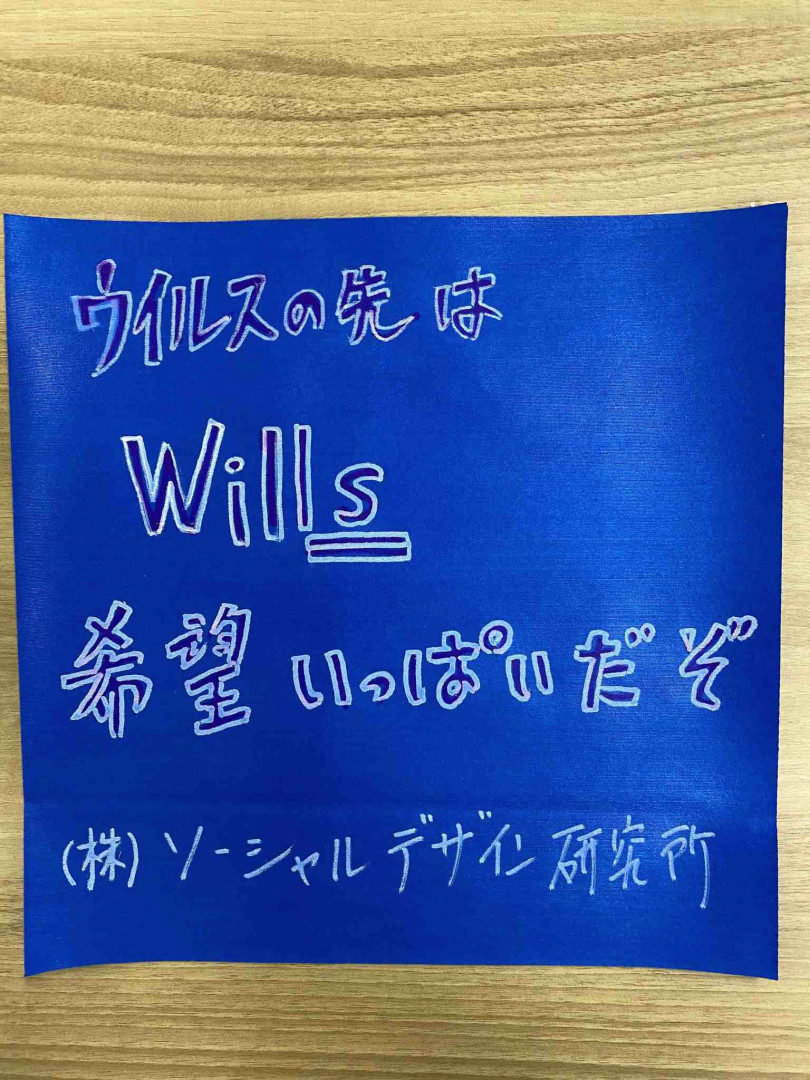 ウイルスの先は
Wills
希望いっぱいだぞ
(株)ソーシャルデザイン研究所